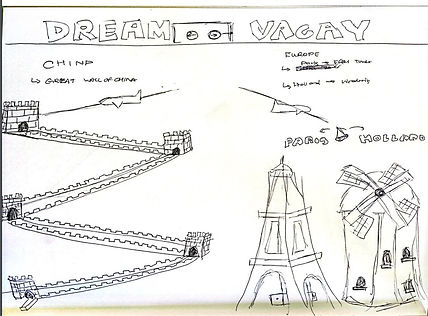 DREAM VACAY
CHINA
↳ GREAT WALL OF CHINA
EUROPE
↳ Paris → Eiffel Tower
↳ Holland →
PARIS HOLLAND